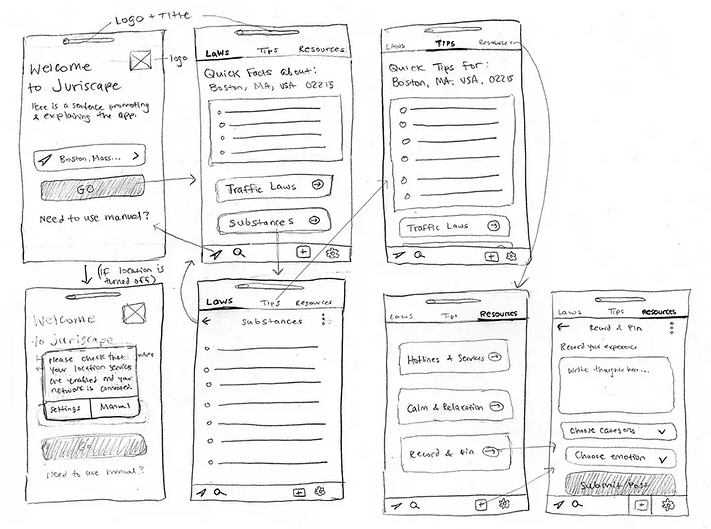 Logo + Title
Welcome
to Juriscape
logo
Here is a sentence promoting
& explaining the app.
Boston, Mass...
GO
Need to use manual?
(if location is
turned off)
Laws Tips Resources
Quick Facts about:
Boston, MA, USA 02215
Traffic Laws
Substances
Laws Tips Resources
Quick Tips for:
Boston, MA, USA, 02215
Traffic Laws
Welcome
to Juriscape
Please check that
your location services
are enabled and your
network is connected.
Settings Manual
Need to use manual?
Laws Tips Resources
Substances
Laws Tips Resources
Hotlines & Services
Calm & Relaxation
Record & Pin
Laws Tips Resources
Record & Pin
Record your experience
Write thoughts here...
Choose category
Choose emotion
Submit Post